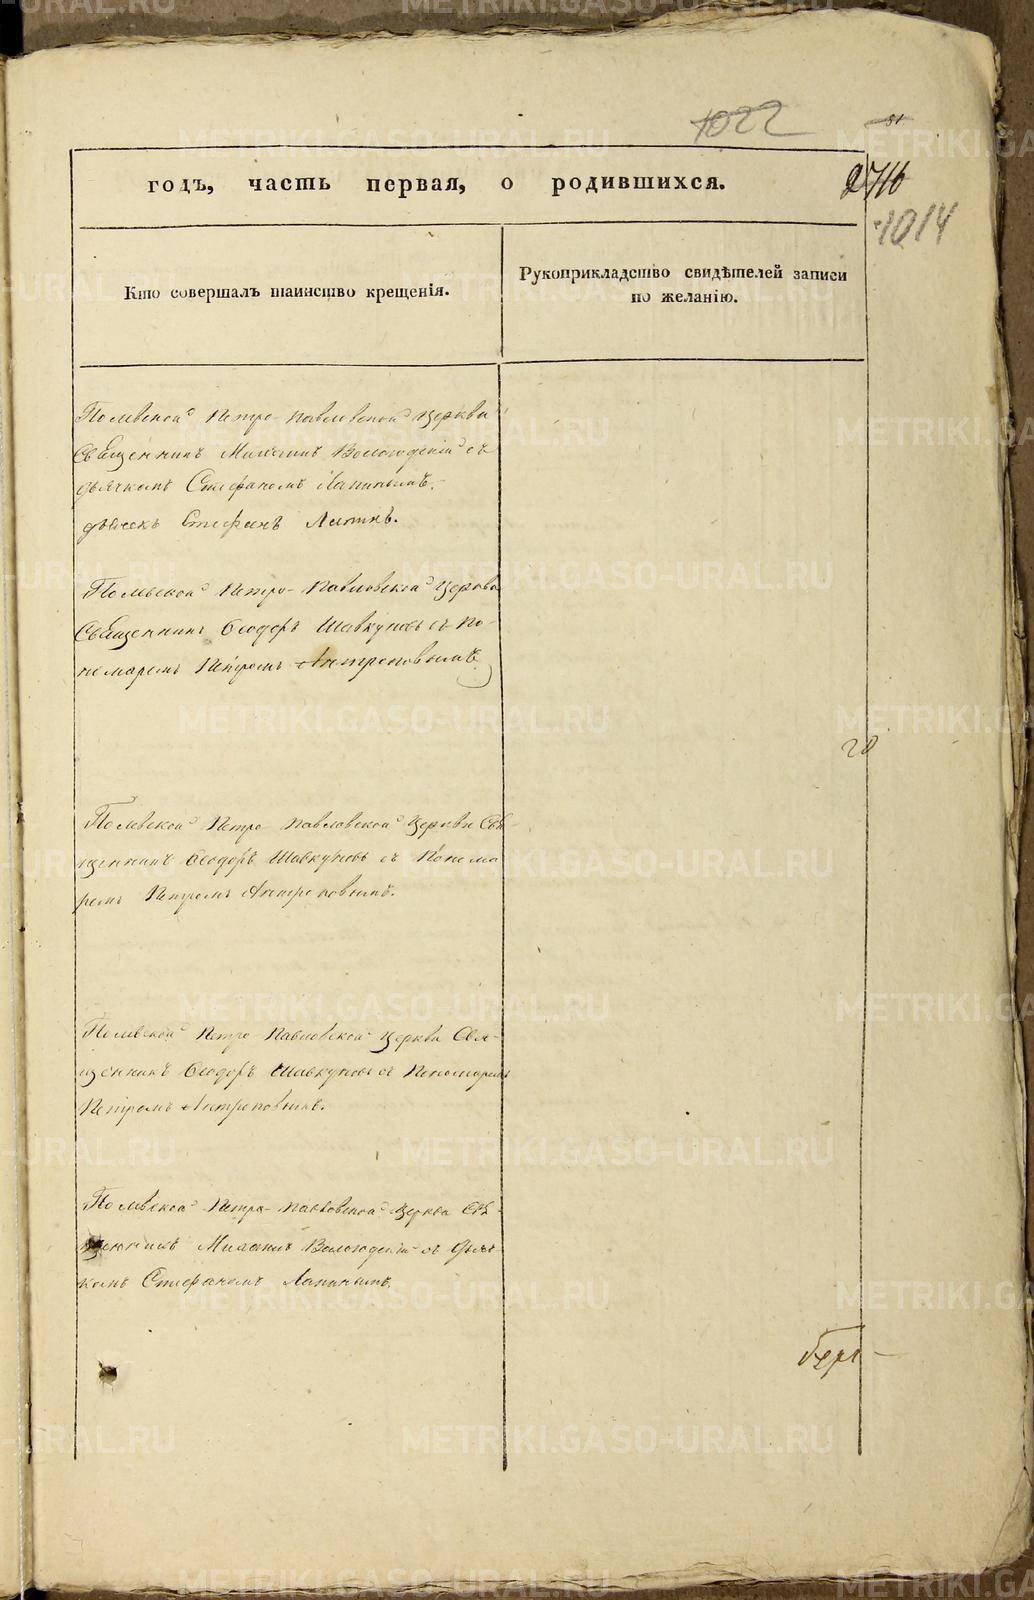 1022
51
годъ, часть первая, о родившихся.
2716
1014
Кто совершалъ таинство крещенія.
Рукоприкладство свидѣтелей записи
по желанію.
Полевской Петро-Павловской церкви
Священникъ Михаилъ Вологодскій съ
дьячкомъ Стефаномъ Лапинымъ.
дьячекъ Стефанъ Лапинъ.
Полевской Петро-Павловской церкви
Священникъ Ѳеодоръ Шавкуновъ съ По-
номаремъ Петромъ Антроповымъ
20
Полевской Петро-Павловской Церкви Свя-
щенникъ Ѳеодоръ Шавкуновъ съ Понома
ремъ Петромъ Антроповымъ.
Полевской Петро-Павловской церкви Свя-
щенникъ Ѳеодоръ Шавкуновъ съ Пономаремъ
Петромъ Антроповымъ.
Полевской Петро-Павловской церкви Свя-
щенникъ Михаилъ Вологодскій съ Дьяч-
комъ Стефаномъ Лапинымъ.
METRIKI.GASO-URAL.RU